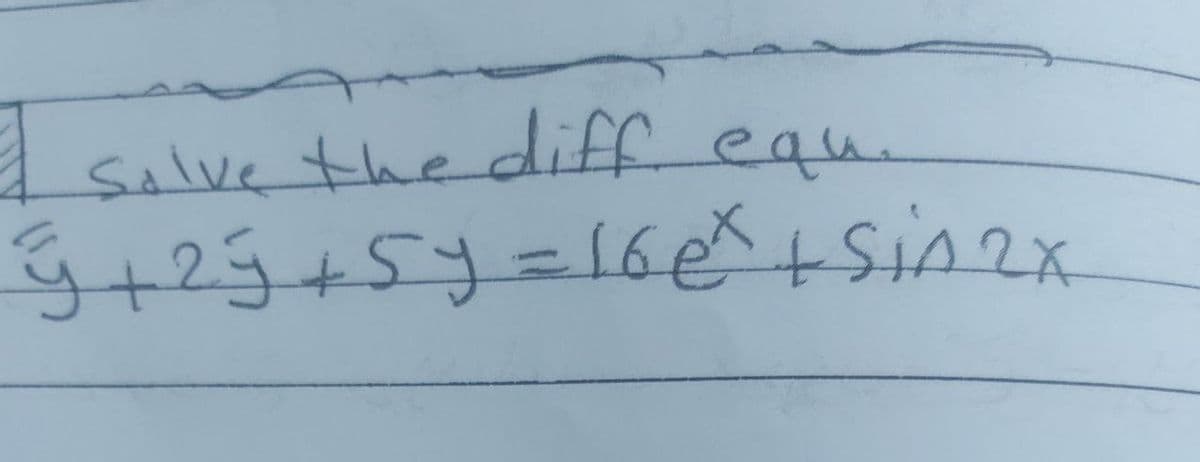 Solve the diff. equ.
y̿ + 2y̅ + 5y = 16e^x + sin2x